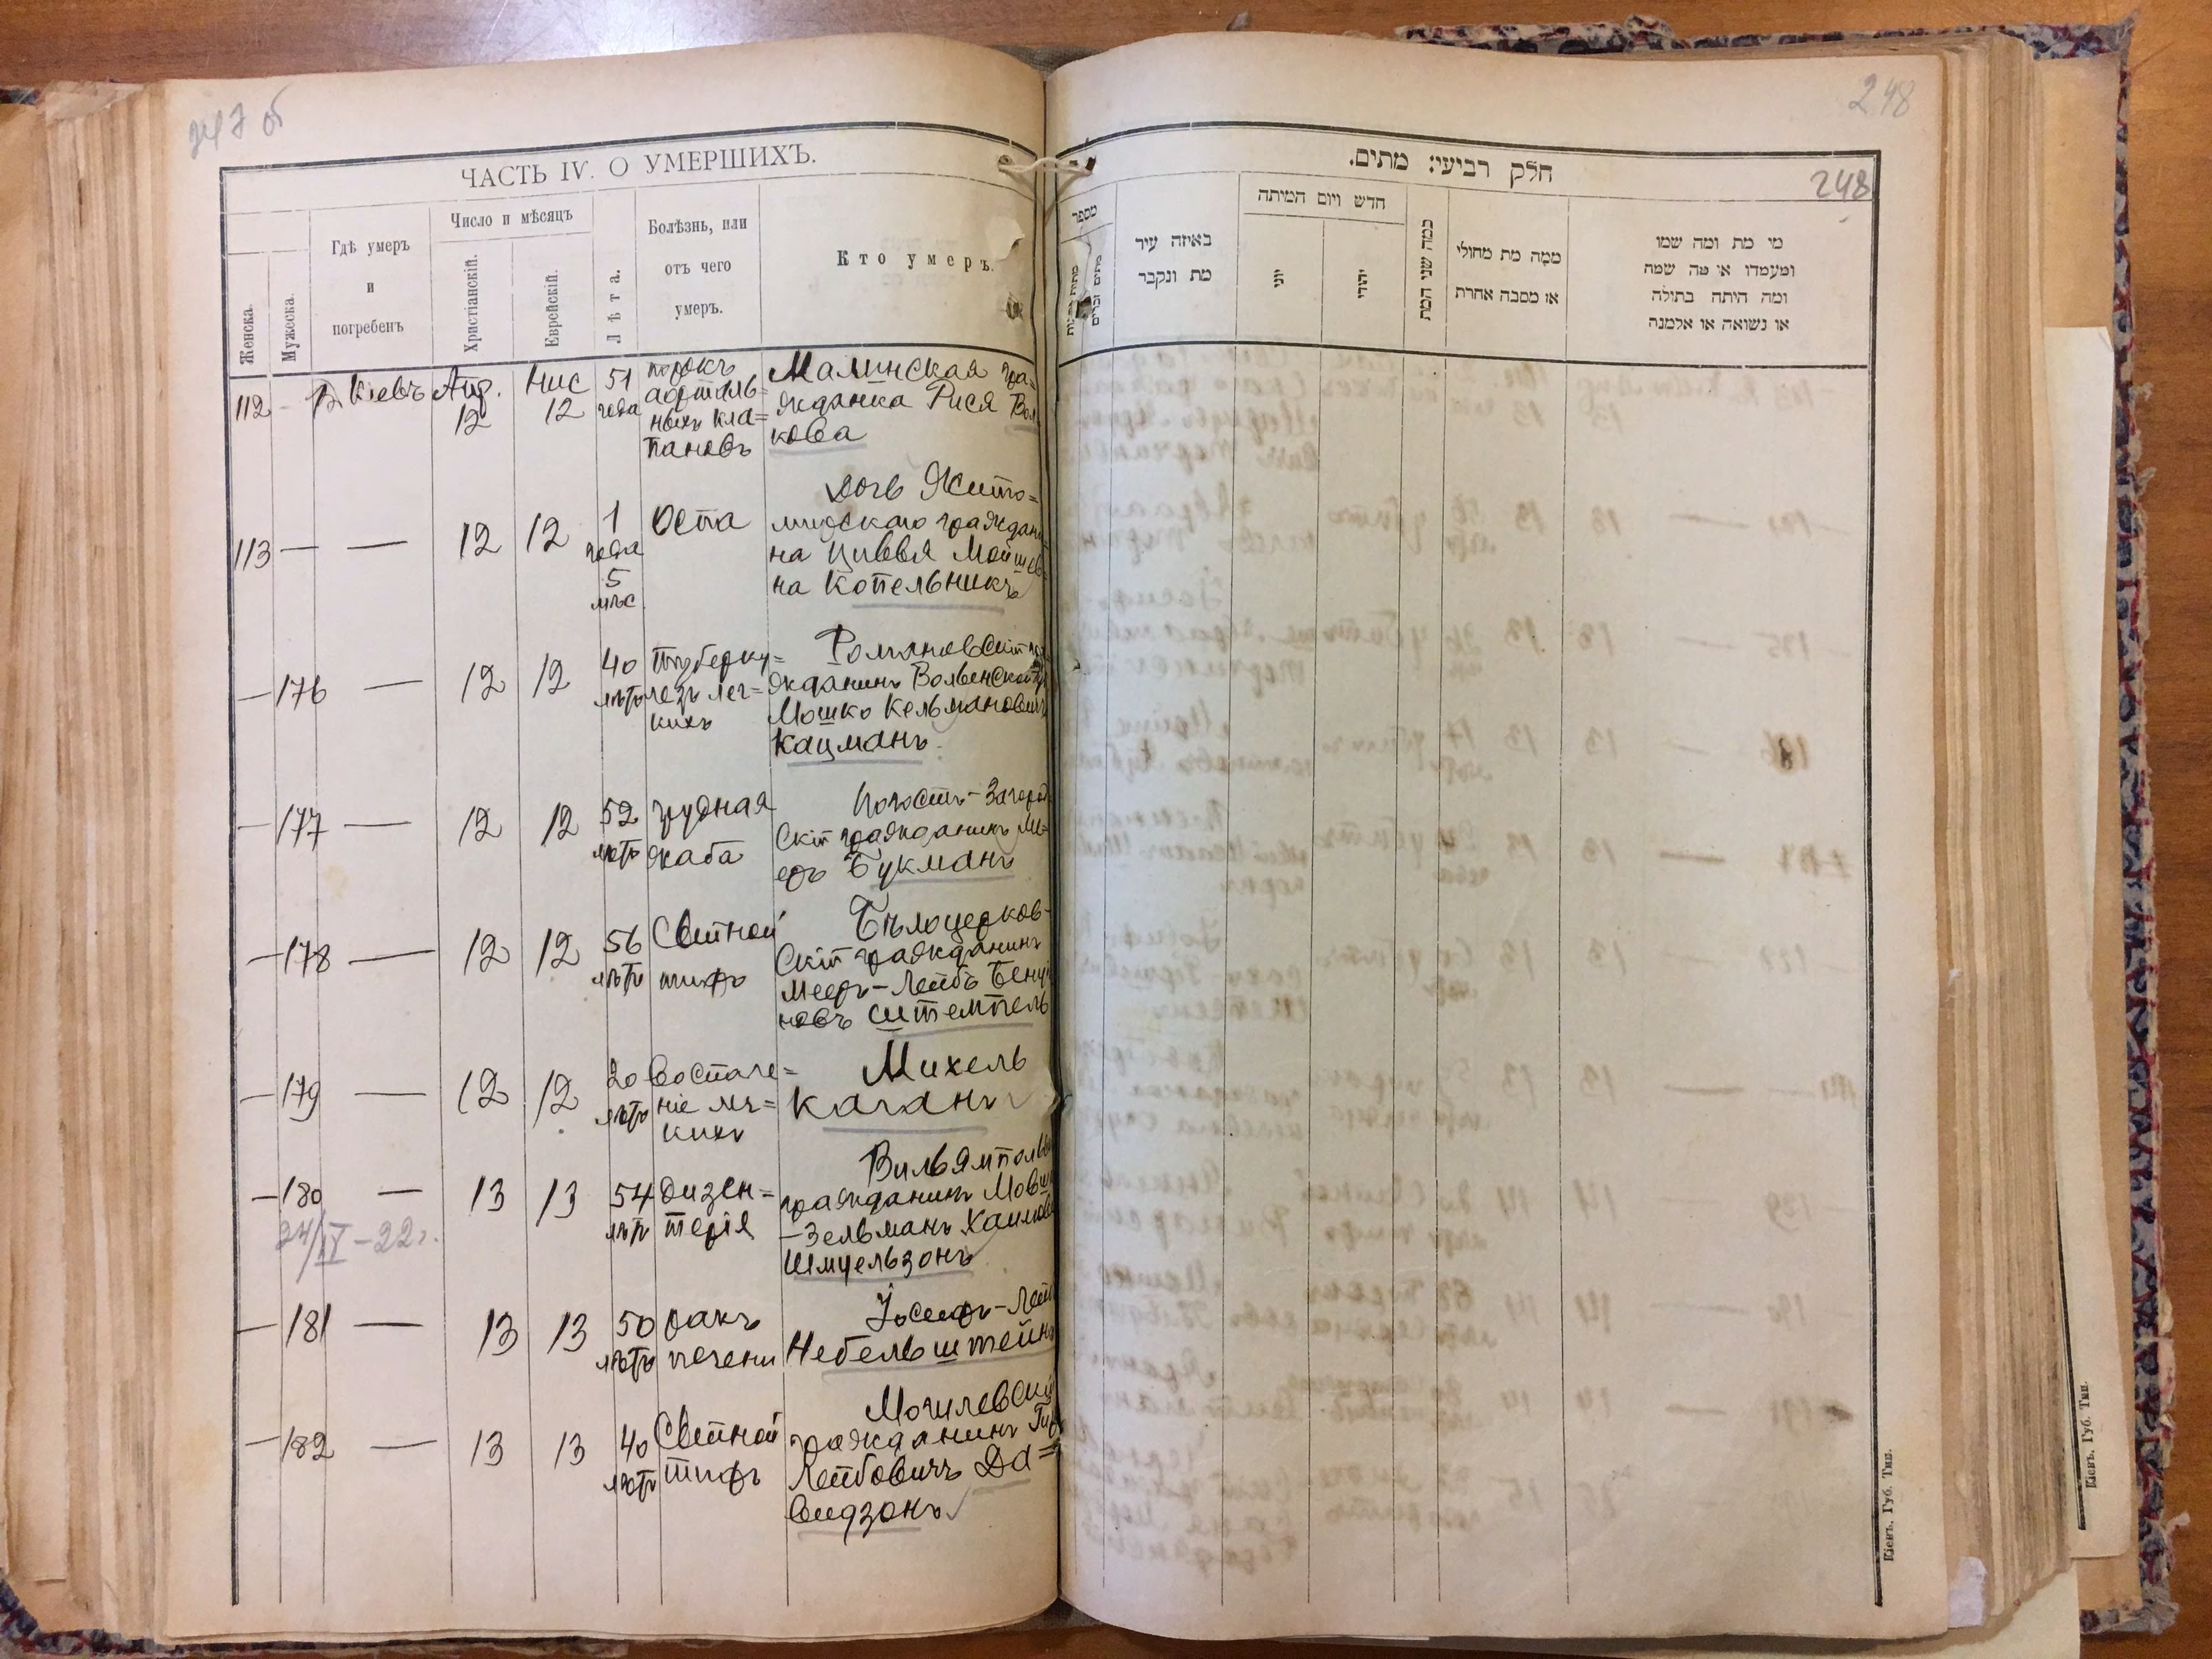 247 об
ЧАСТЬ IV. О УМЕРШИХЪ.
Женска.
Мужеска.
Гдѣ умеръ
и
погребенъ
Число и мѣсяцъ
Христіанскій.
Еврейскій.
Лѣта.
Болѣзнь, или
отъ чего
умеръ.
Кто умеръ.
112 - В. Кіевъ Апр. 12 Нис 12 51 года
порокъ
аорталь=
ныхъ кла=
пановъ
Малинская гра=
жданка Рися Вол
кова
113 — — 12 12 1 года 5 мѣс
Оспа
дочь Жито=
мирскаго граждани
на Цивья Мойшев
на Копельникъ
— 176 — 12 12 40 лѣтъ
Туберку=
лезъ лег=
кихъ
Романовскій гра
жданинъ Волынской
Мошко Кельманович
Кацманъ
— 177 — 12 12 52 лѣтъ
грудная
жаба
Погостъ-Загород
скій гражданинъ Ме=
еръ Букманъ
— 178 — 12 12 56 лѣтъ
Сыпной
тифъ
Бѣлоцерков-
скій гражданинъ
Мееръ-Лейбъ
новъ Штемпель
— 179 — 12 12 20 лѣтъ
Воспале=
ніе лег=
кихъ
Михель
Каганъ
— 180 — 13 13 54 лѣтъ
24/IV-22г.
Дизен=
терія
Вильямполь
гражданинъ Мовш
-Зельманъ Хаимов
Шмуельзонъ
— 181 — 13 13 50 лѣтъ
ракъ
печени
Іосифъ-Лейб
Небельштейнъ
— 182 — 13 13 40 лѣтъ
Сыпной
тифъ
Могилевскій
гражданинъ Гир
Лейбовичъ Да=
видзонъ
248
חלק רביעי: מתים.
248
מספר
באיזה עיר
מת ונקבר
חדש ויום המיתה
יוני
יהודי
כמה שני המת
ממה מת מחולי
או מסבה אחרת
מי מת ומה שמו
ומעמדו או מה שמה
ומה היתה בתולה
או נשואה או אלמנה
Кіевъ. Губ. Тип.
Кіевъ. Губ. Тип.